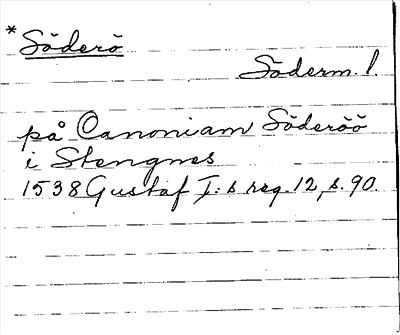 * Söderö
Söderm. l.
på Canoniam Söderöö
i Stengnes
1538 Gustaf I:s reg. 12, s. 90.